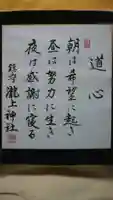 道心
朝は希望に起き
昼は努力に生き
夜は感謝に寝る
瀧上神社